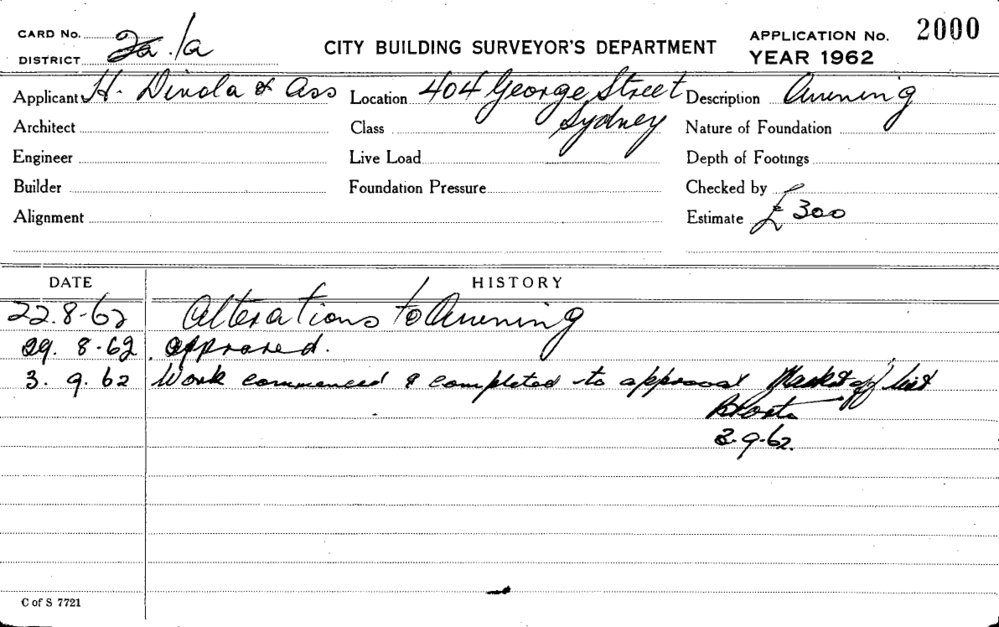 CARD No.
DISTRICT 2a. 1a
CITY BUILDING SURVEYOR'S DEPARTMENT
APPLICATION No. 2000
YEAR 1962
Applicant H. Dinola & Ass Location 404 George Street Description Awning
Architect Class Sydney Nature of Foundation
Engineer Live Load Depth of Footings
Builder Foundation Pressure Checked by
Alignment Estimate £300
DATE HISTORY
22.8-62 Alterations to Awning
29. 8-62 approved.
3. 9. 62 Work commenced & completed to approval Marked off list
3-9-62.
C of S 7721